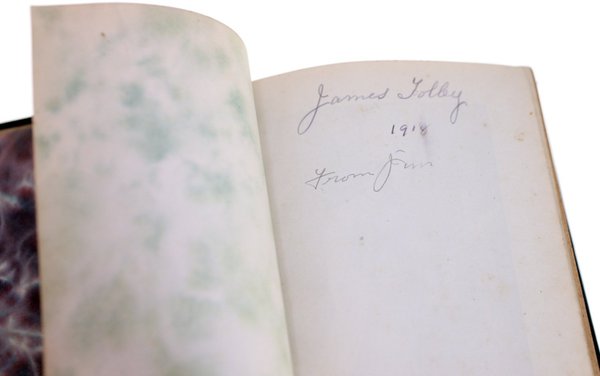 James Tolley
1918
From Jim